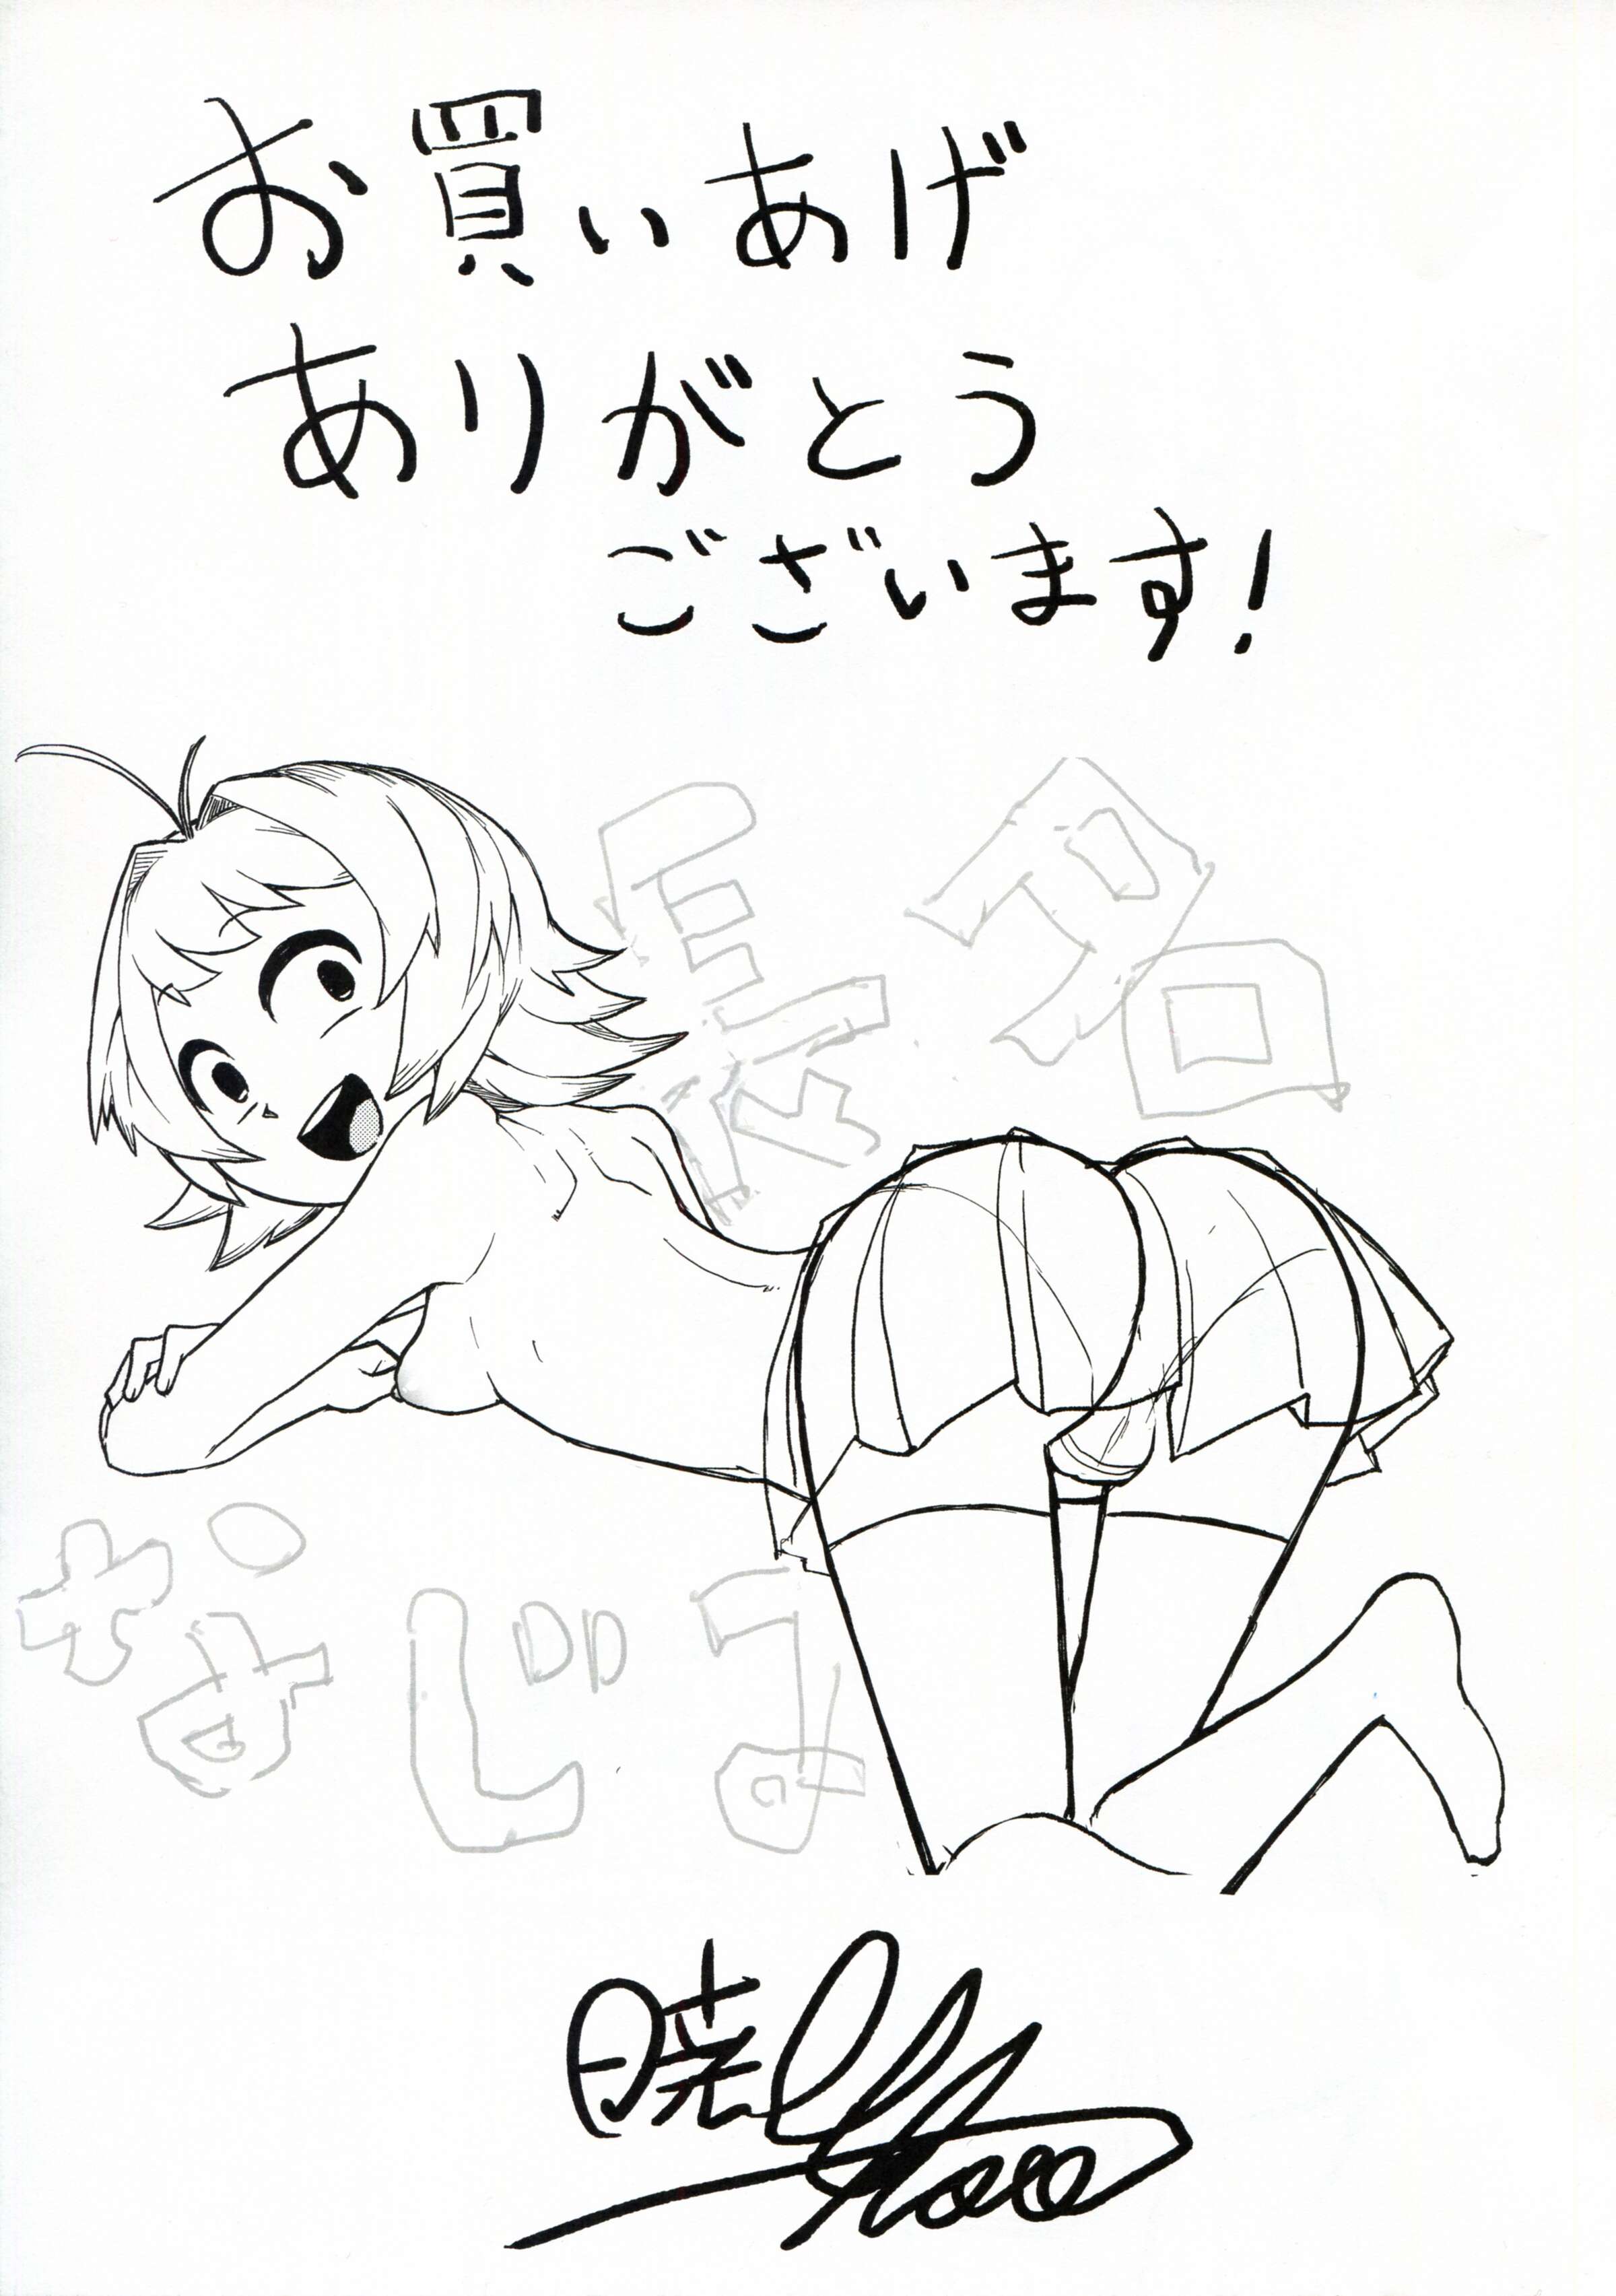 お買いあげ
ありがとう
ございます!
長名
なじま
暁